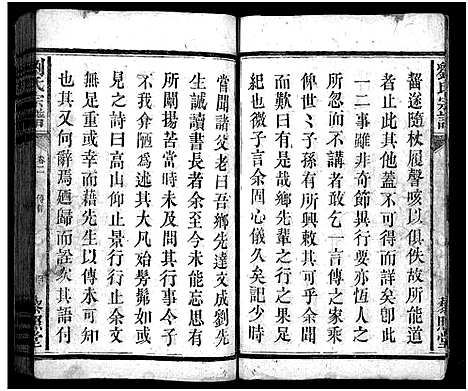 劉氏宗譜
嵤遂隨杖履謦咳以俱佚故所能道
者止此其他蓋不可得而詳矣卽此
一二事雖非奇節異行要亦恆人之
所忽而不講者也故一一言傳之來裔
俾世〻子孫有所興敕焉
於戲若是哉鄉先輩之行之果足
紀也微子言余固心儀久矣記少時
嘗聞諸父老曰吾鄉先達文成劉先
生誠讀書長者余至今未能忘思有
所闡揚苦當時未及問其行事令子
不以余僿陋爲述其大凡始髣髴如或
見之詩曰高山仰止景行行止余文
無足重或幸藉先生以傳未可知
也其又何辭焉廼歸而次其語付
劉氏宗譜
卷二
蔡照堂